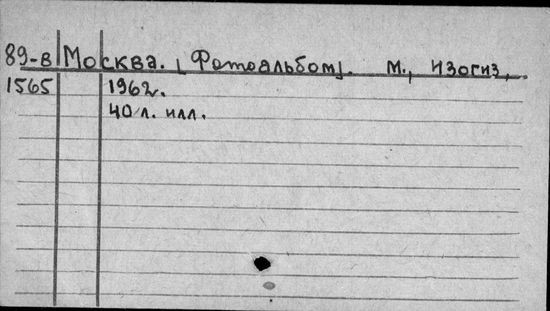 89-в Москва. [Фотоальбом]. М., Изогиз,
1565 1962.
40 л. илл.